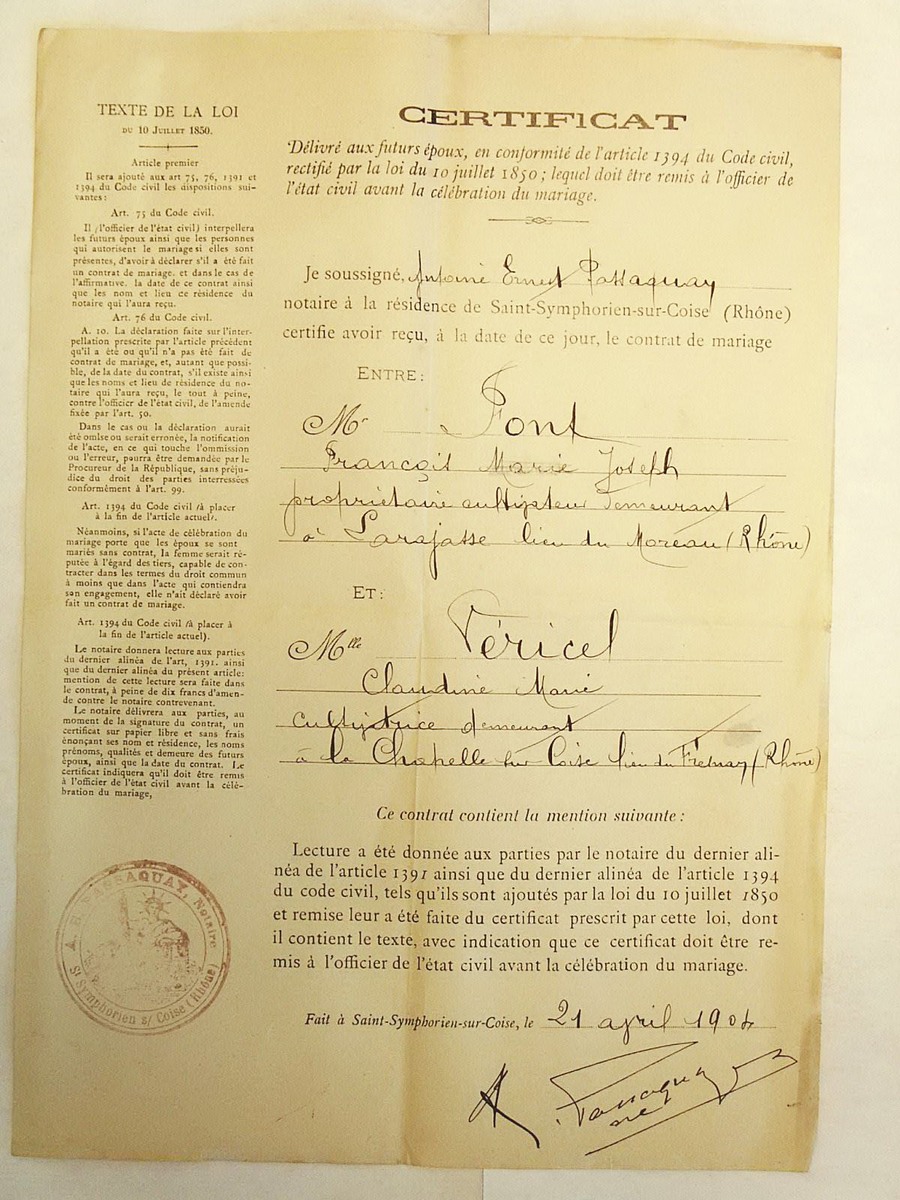 TEXTE DE LA LOI
DU 10 JUILLET 1850.
Article premier
Il sera ajouté aux art 75, 76, 1391 et
1394 du Code civil les dispositions sui-
vantes :
Art. 75 du Code civil.
Il (l'officier de l'état civil) interpellera
les futurs époux ainsi que les personnes
qui autorisent le mariage si elles sont
présentes, d'avoir à déclarer s'il a été fait
un contrat de mariage. et dans le cas de
l'affirmative. la date de ce contrat ainsi
que les nom et lieu de résidence du
notaire qui l'aura reçu.
Art. 76 du Code civil.
A. 10. La déclaration faite sur l'inter-
pellation prescrite par l'article précédent
qu'il a été ou qu'il n'a pas été fait de
contrat de mariage, et, autant que possi-
ble, de la date du contrat, s'il existe ainsi
que les noms et lieu de résidence du no-
taire qui l'aura reçu, le tout à peine,
contre l'officier de l'état civil, de l'amende
fixée par l'art. 50.
Dans le cas ou la déclaration aurait
été omise ou serait erronée, la notification
de l'acte, en ce qui touche l'ommission
ou l'erreur, paurra être demandée par le
Procureur de la République, sans préju-
dice du droit des parties interressées
conformément à l'art. 99.
Art. 1394 du Code civil (à placer
à la fin de l'article actuel).
Néanmoins, si l'acte de célébration du
mariage porte que les époux se sont
mariés sans contrat, la femme serait ré-
putée à l'égard des tiers, capable de con-
tracter dans les termes du droit commun
à moins que dans l'acte qui contiendra
son engagement, elle n'ait déclaré avoir
fait un contrat de mariage.
Art. 1394 du Code civil (à placer à
la fin de l'article actuel).
Le notaire donnera lecture aux parties
du dernier alinéa de l'art, 1391. ainsi
que du dernier alinéa du présent article:
mention de cette lecture sera faite dans
le contrat, à peine de dix francs d'amen-
de contre le notaire contrevenant.
Le notaire délivrera aux parties, au
moment de la signature du contrat, un
certificat sur papier libre et sans frais
énonçant ses nom et résidence, les noms
prénoms, qualités et demeure des futurs
époux, ainsi que la date du contrat. Le
certificat indiquera qu'il doit être remis
à l'officier de l'état civil avant la célé-
bration du mariage,
A. E. PASSAQUAY, Notaire
St Symphorien s/ Coise (Rhône)
CERTIFICAT
Délivré aux futurs époux, en conformité de l'article 1394 du Code civil,
rectifié par la loi du 10 juillet 1850 ; lequel doit être remis à l'officier de
l'état civil avant la célébration du mariage.
Je soussigné, Antoine Ernest Passaquay
notaire à la résidence de Saint-Symphorien-sur-Coise (Rhône)
certifie avoir reçu, à la date de ce jour, le contrat de mariage
ENTRE :
Mr Font
François Marie Joseph
propriétaire cultivateur demeurant
à Larajasse lieu du Moreau (Rhône)
ET :
Mlle Véricel
Claudine Marie
cultivatrice demeurant
à la Chapelle sur Coise lieu du Fresnay (Rhône)
Ce contrat contient la mention suivante :
Lecture a été donnée aux parties par le notaire du dernier ali-
néa de l'article 1391 ainsi que du dernier alinéa de l'article 1394
du code civil, tels qu'ils sont ajoutés par la loi du 10 juillet 1850
et remise leur a été faite du certificat prescrit par cette loi, dont
il contient le texte, avec indication que ce certificat doit être re-
mis à l'officier de l'état civil avant la célébration du mariage.
Fait à Saint-Symphorien-sur-Coise, le 21 april 1904
Passaquay